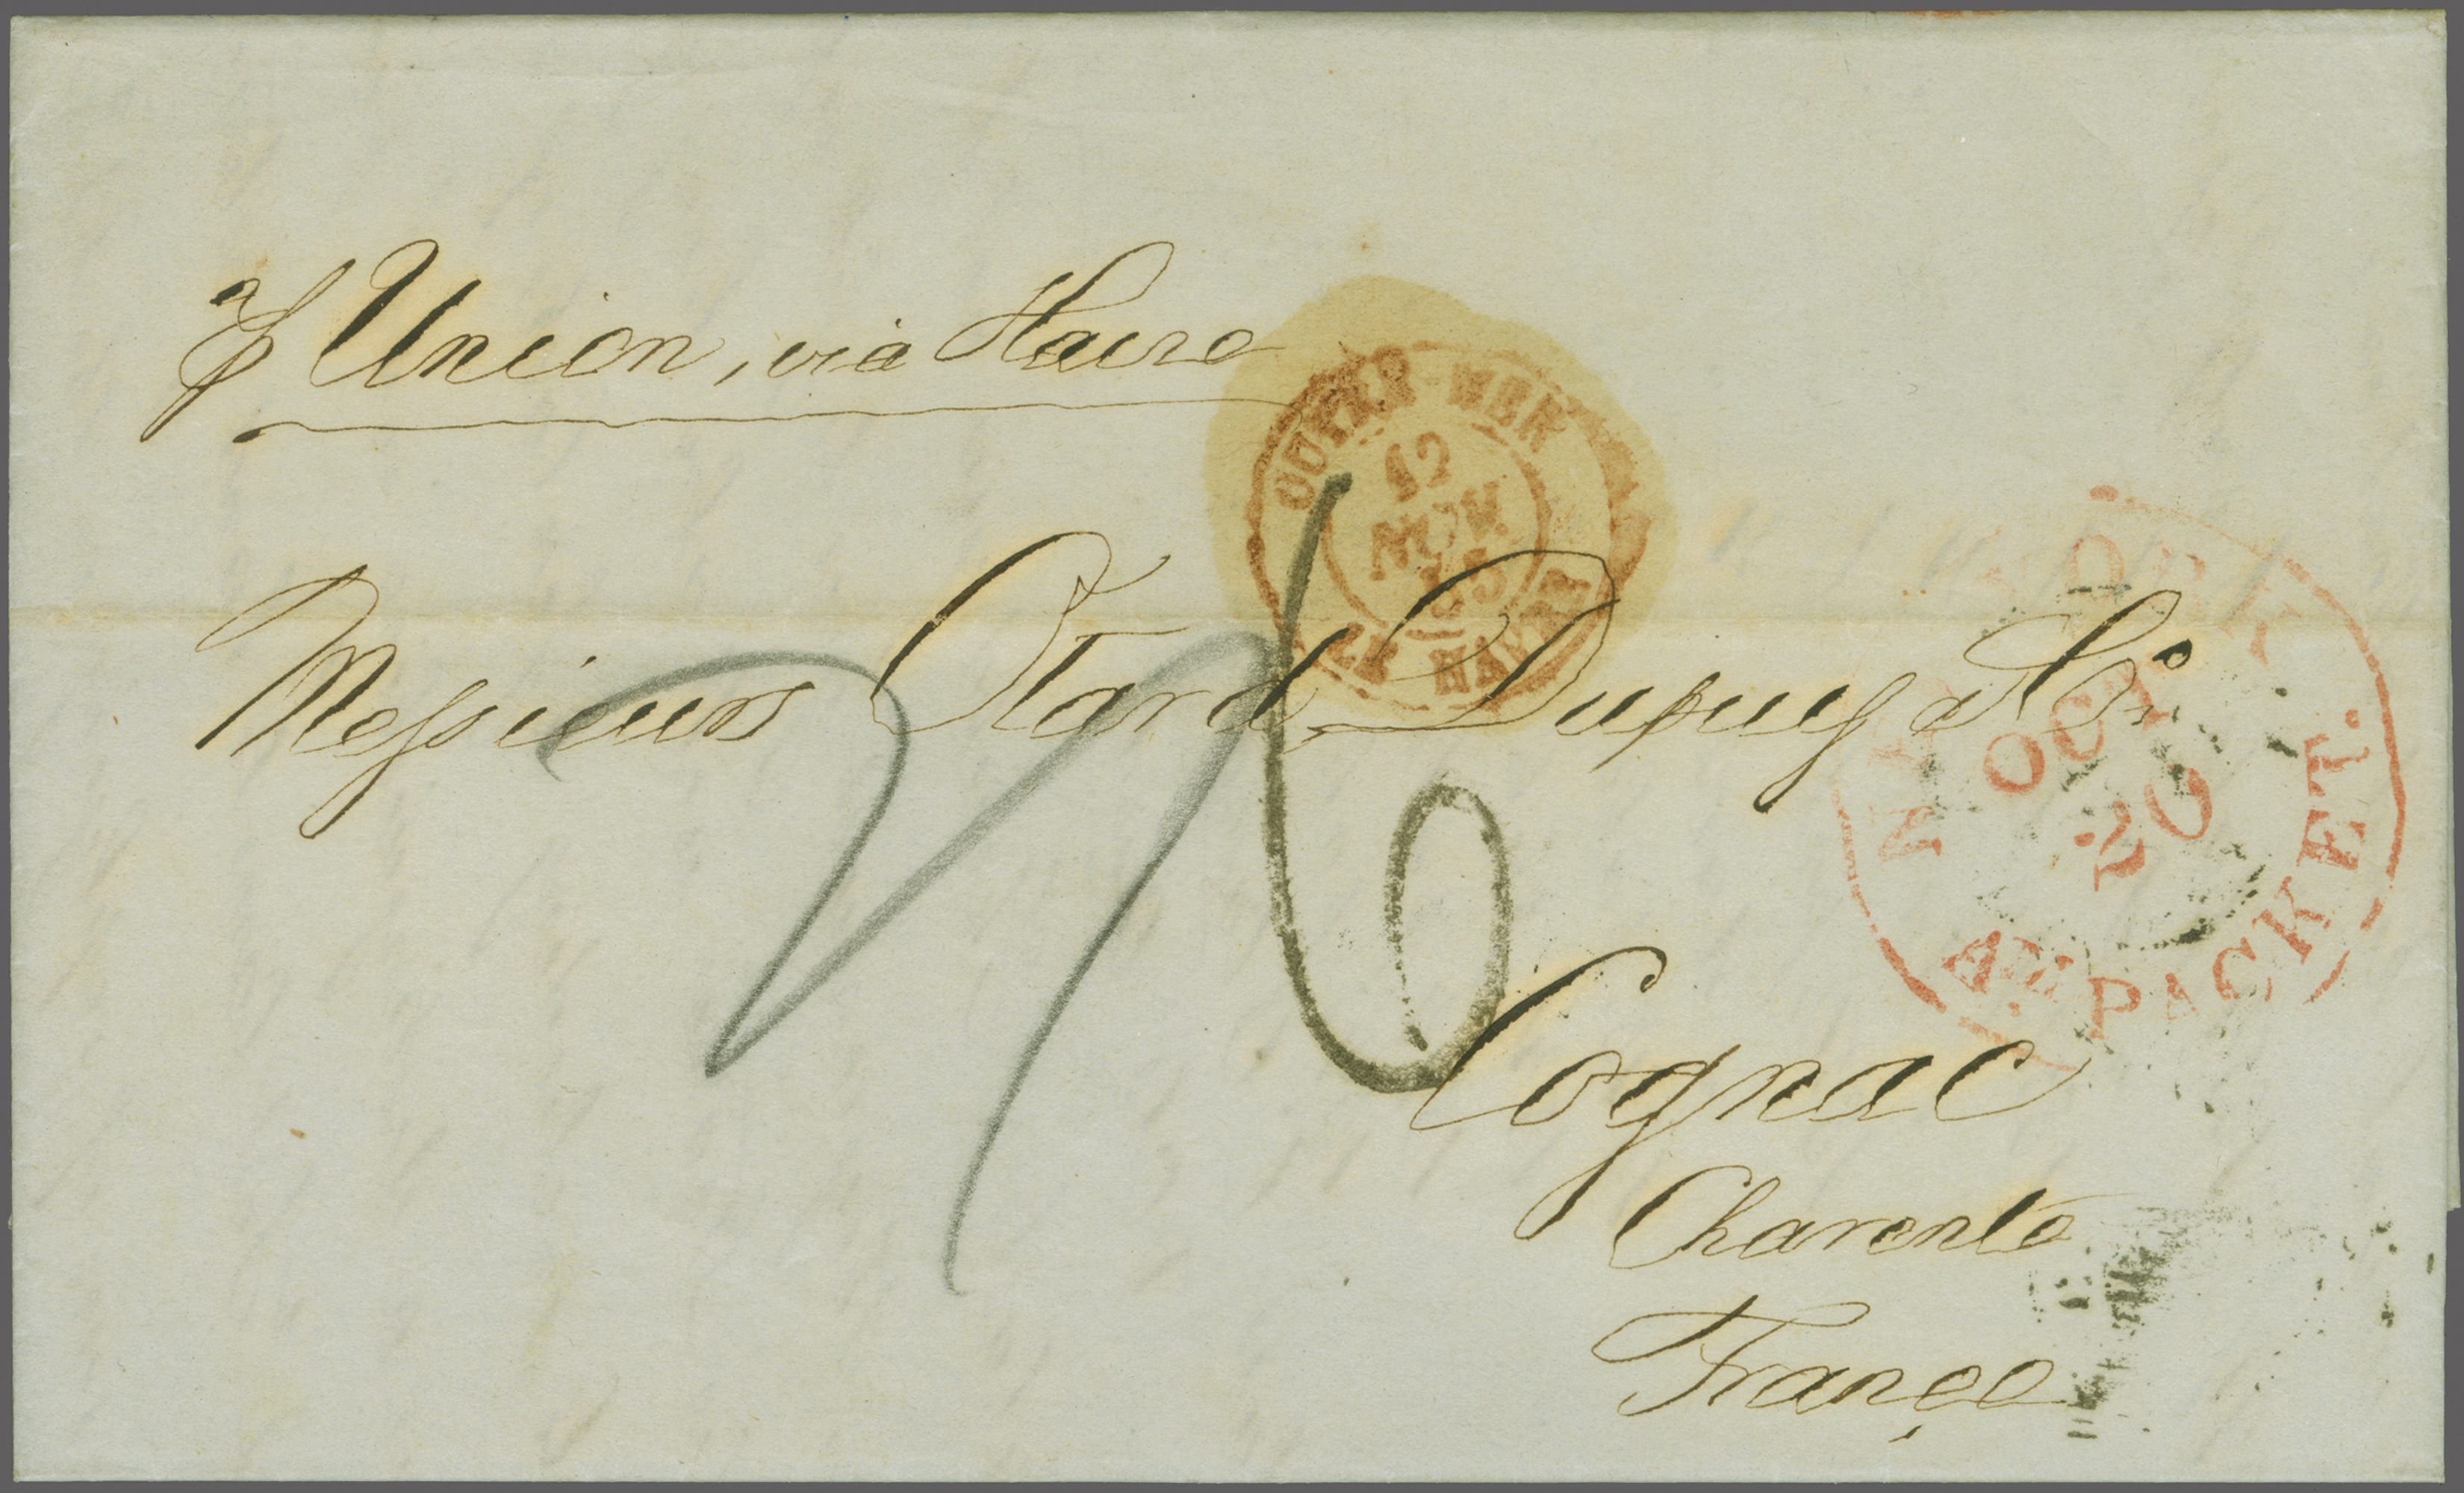 ⅌ Union, via Havre
OUTRE-MER
12
NOV.
55
LE HAVRE
Messieurs Otard Dupuy & Co
NEW YORK
OCT
20
AM. PACKET.
16
Cognac
Charente
France